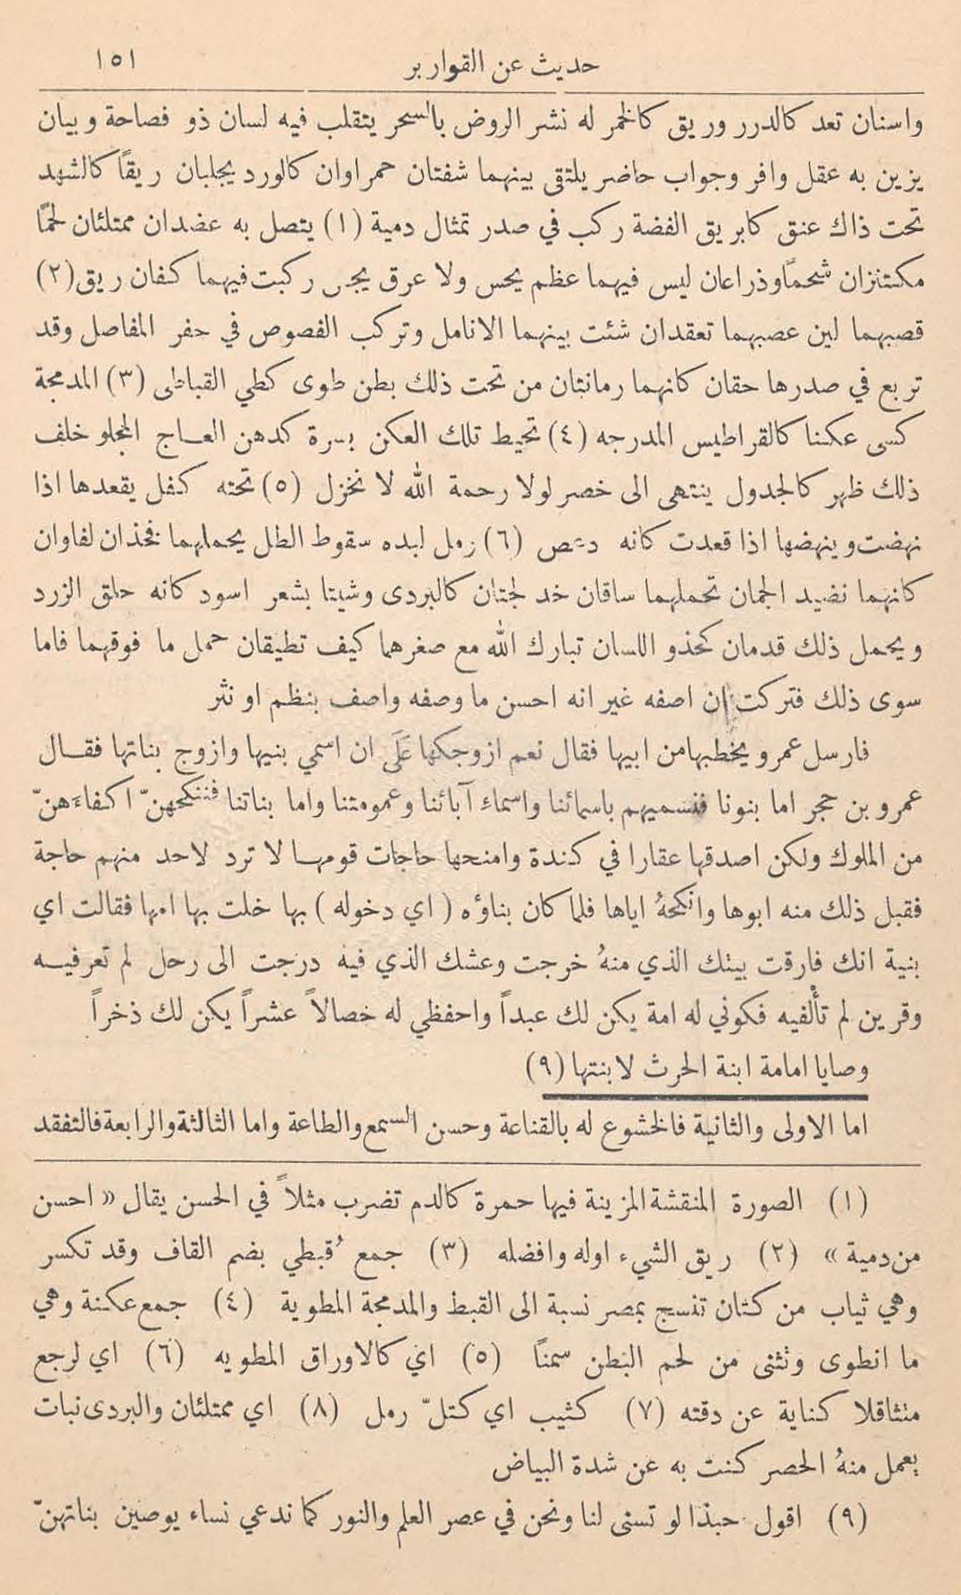 حديث عن القوارير ١٥١
واسنان تعد كالدرر وريق كالخمر له نشر الروض بالسحر يتقلب فيه لسان ذو فصاحة وبيان
يزين به عقل وافر وجواب حاضر يلتقى بينهما شفتان حمراوان كالورد يجلبان ريقًا كالشهد
تحت ذاك عنق كابريق الفضة ركب في صدر تمثال دمية (١) يتصل به عضدان ممتلئان لحمًا
مكتنزان شحمًا وذراعان ليس فيهما عظم يحس ولا عرق يجس ركبت فيهما كفان ريق (٢)
قصبهما لين عصبهما تعقدان شئت بينهما الانامل وتركب الفصوص في حفر المفاصل وقد
تربع في صدرها حقان كانهما رمانتان من تحت ذلك بطن طوى كطي القباطى (٣) المدمجة
كسى عكنا كالقراطيس المدرجه (٤) تحيط تلك العكن بسرة كدهن العاج المجلو خلف
ذلك ظهر كالجدول ينتهى الى خصر لولا رحمة الله لا نخزل (٥) تحته كفل يقعدها اذا
نهضت وينهضها اذا قعدت كانه دعص (٦) رمل لبده سقوط الطل يحملهما فخذان لفاوان
كانهما نضيد الجمان تحملهما ساقان خدلجتان كالبردى وشيتا بشعر اسود كانه حلق الزرد
ويحمل ذلك قدمان كحذو اللسان تبارك الله مع صغرهما كيف تطيقان حمل ما فوقهما فاما
سوى ذلك فتركت ان اصفه غير انه احسن ما وصفه واصف بنظم او نثر
فارسل عمرو يخطبها من ابيها فقال نعم ازوجكها عَلَى ان اسمي بنيها وازوج بناتها فقال
عمرو بن حجر اما بنونا فنسميهم باسمائنا واسماء آبائنا وعمومتنا واما بناتنا فننكحهنّ اكفاءهنّ
من الملوك ولكن اصدقها عقارا في كندة وامنحها حاجات قومها لا ترد لاحد منهم حاجة
فقبل ذلك منه ابوها وانكحهُ اياها فلما كان بناؤه (اي دخوله) بها خلت بها امها فقالت اي
بنية انك فارقت بيتك الذي منهُ خرجت وعشك الذي فيه درجت الى رحل لم تعرفيه
وقرين لم تألفيه فكوني له امة يكن لك عبداً واحفظي له خصالاً عشراً يكن لك ذخراً
وصايا امامة ابنة الحرث لابنتها (٩)
اما الاولى والثانية فالخشوع له بالقناعة وحسن السمع والطاعة واما الثالثة والرابعة فالتفقد
(١) الصورة المنقشة المزينة فيها حمرة كالدم تضرب مثلاً في الحسن يقال «احسن
من دمية» (٢) ريق الشيء اوله وافضله (٣) جمع قُبطي بضم القاف وقد تكسر
وهي ثياب من كتان تنسج بمصر نسبة الى القبط والمدمجة المطوية (٤) جمع عكنة وهي
ما انطوى وتثنى من لحم البطن سمنًا (٥) اي كالاوراق المطويه (٦) اي لرجع
متثاقلا كناية عن دقته (٧) كثيب اي كتلّ رمل (٨) اي ممتلئان والبردى نبات
يعمل منهُ الحصر كنت به عن شدة البياض
(٩) اقول حبذا لو تسنى لنا ونحن في عصر العلم والنور كما ندعي نساء يوصين بناتهنّ